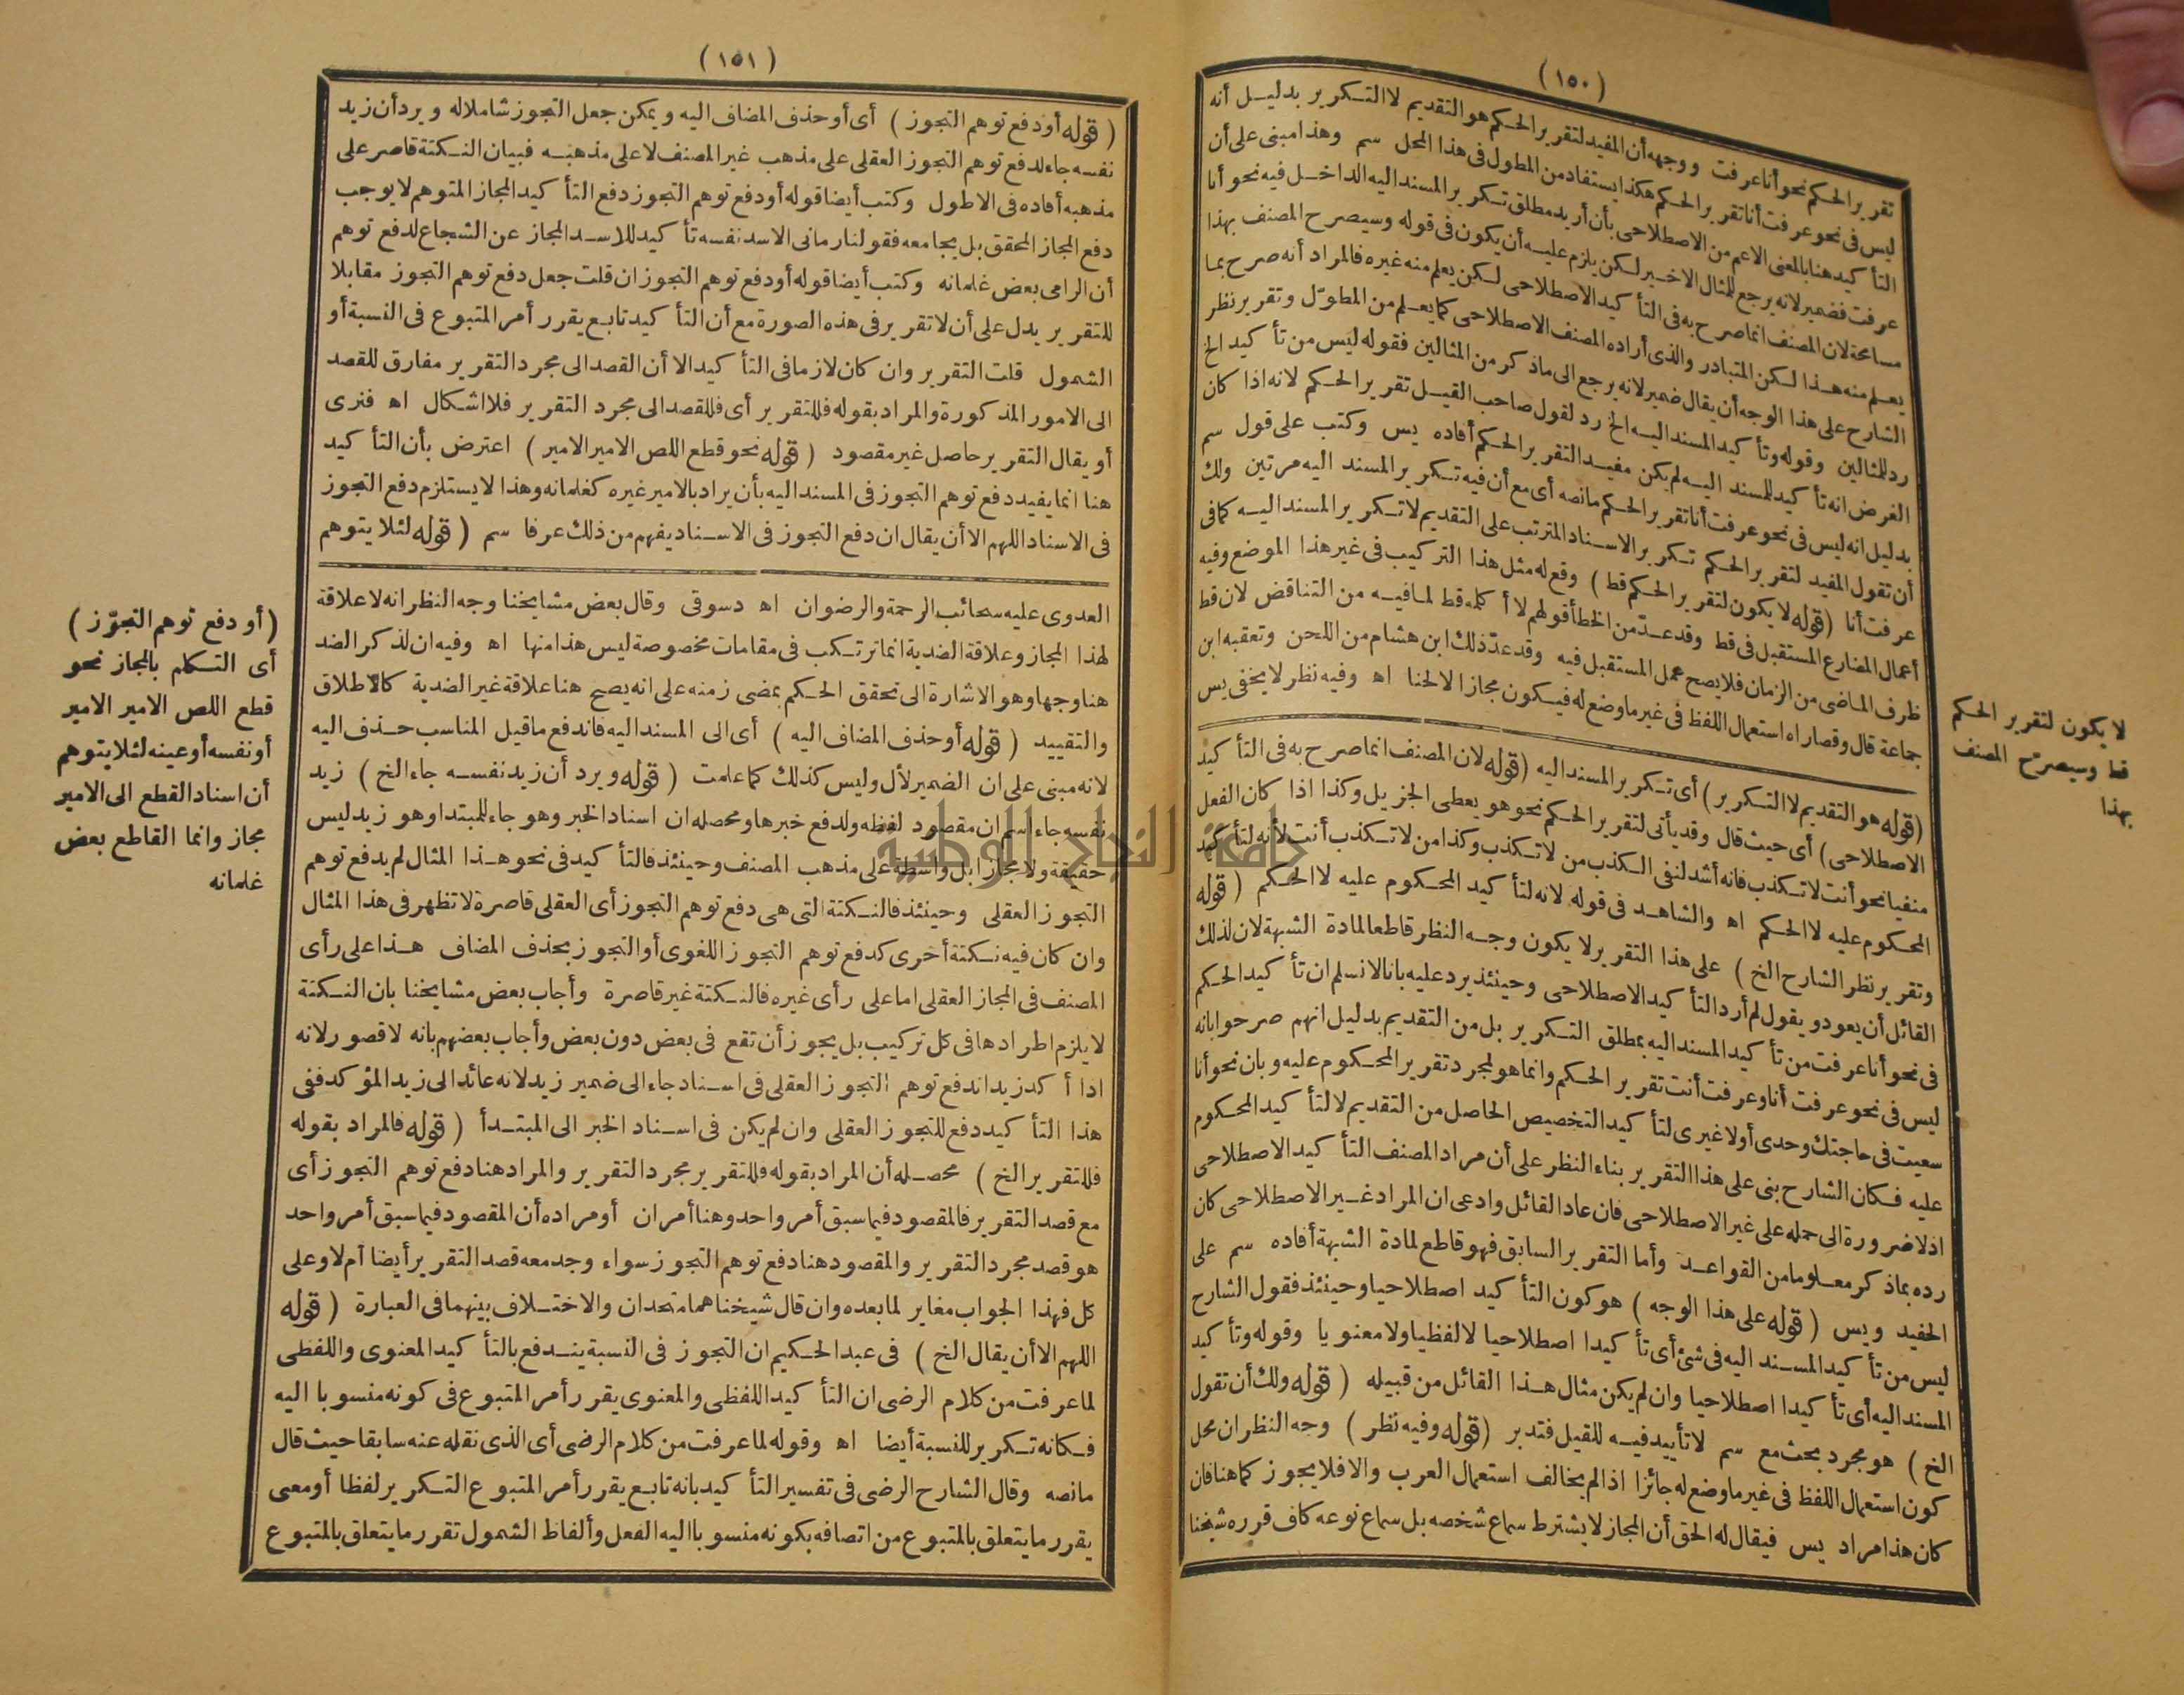 (١٥٠)
تقرير الحكم نحو أنا عرفت ووجهه أن المفيد لتقرير الحكم هو التقديم لا التكرير بدليل أنه
ليس فى نحو عرفت أنا تقرير الحكم هكذا يستفاد من المطول فى هذا المحل سم وهذا مبنى على أن
التأكيد هنا بالمعنى الاعم من الاصطلاحى بأن أريد مطلق تكرير المسند اليه الداخل فيه نحو أنا
عرفت فضميرلانه يرجع للمثال الاخير لكن يلزم عليه أن يكون فى قوله وسيصرح المصنف بهذا
مسامحة لان المصنف انما صرح به فى التأكيد الاصطلاحى لكن يعلم منه غيره فالمراد أنه صرح بما
يعلم منه هذا لكن المتبادر والذى أراده المصنف الاصطلاحى كما يعلم من المطوّل وتقرير نظر
الشارح على هذا الوجه أن يقال ضمير لانه يرجع الى ماذكر من المثالين فقوله ليس من تأكيد الخ
رد للمثالين وقوله وتأكيد المسند اليه الخ رد لقول صاحب القيل تقرير الحكم لانه اذا كان
الغرض انه تأكيد للمسند اليه لم يكن مفيد التقرير الحكم أفاده يس وكتب على قول سم
بدليل انه ليس فى نحو عرفت أنا تقرير الحكم مانصه أى مع أن فيه تكرير المسند اليه مرتين ولك
أن تقول المفيد لتقرير الحكم تكرير الاسناد المترتب على التقديم لا تكرير المسند اليه كما فى
عرفت أنا (قوله لا يكون لتقرير الحكم قط) وقع له مثل هذا التركيب فى غير هذا الموضع وفيه
أعمال المضارع المستقبل فى قط وقد عدّ من الخطأ قولهم لا أكله قط لما فيه من التناقض لان قط
ظرف الماضى من الزمان فلا يصح عمل المستقبل فيه وقد عدّ ذلك ابن هشام من اللحن وتعقبه ابن
جماعة قال وقصاراه استعمال اللفظ فى غير ما وضع له فيكون مجازا لا لحنا اه وفيه نظر لا يخفى يس
(قوله هو التقديم لا التكرير) أى تكرير المسند اليه (قوله لان المصنف انما صرح به فى التأكيد
الاصطلاحى) أى حيث قال وقد يأتى لتقرير الحكم نحو هو يعطى الجزيل وكذا اذا كان الفعل
منفيا نحو أنت لا تكذب فانه أشد لنفى الكذب من لا تكذب وكذا من لا تكذب أنت لأنه لتأكيد
المحكوم عليه لا الحكم اه والشاهد فى قوله لانه لتأكيد المحكوم عليه لا الحكم (قوله
وتقرير نظر الشارح الخ) على هذا التقرير لا يكون وجه النظر قاطعا لمادة الشبهة لان لذلك
القائل أن يعود ويقول لم أرد التأكيد الاصطلاحى وحينئذ يرد عليه بانا لا نسلم ان تأكيد الحكم
فى نحو أنا عرفت من تأكيد المسند اليه بمطلق التكرير بل من التقديم بدليل انهم صرحوا بانه
ليس فى نحو عرفت أنا وعرفت أنت تقرير الحكم وانما هو لمجرد تقرير المحكوم عليه وبان نحو أنا
سعيت فى حاجتك وحدى أولا غيرى لتأكيد التخصيص الحاصل من التقديم لا لتأكيد المحكوم
عليه فكان الشارح بنى على هذا التقرير بناء النظر على أن مراد المصنف التأكيد الاصطلاحى
اذلا ضرورة الى حمله على غير الاصطلاحى فان عاد القائل وادعى ان المراد غير الاصطلاحى كان
رده بماذكر معلوما من القواعد وأما التقرير السابق فهو قاطع لمادة الشبهة أفاده سم على
الحفيد ويس (قوله على هذا الوجه) هو كون التأكيد اصطلاحيا وحينئذ فقول الشارح
ليس من تأكيد المسند اليه فى شئ أى تأكيدا اصطلاحيا لا لفظيا ولا معنويا وقوله وتأكيد
المسند اليه أى تأكيدا اصطلاحيا وان لم يكن مثال هذا القائل من قبيله (قوله ولك أن تقول
الخ) هو مجرد بحث مع سم لا تأييد فيه للقيل فتدبر (قوله وفيه نظر) وجه النظر ان محل
كون استعمال اللفظ فى غير ما وضع له جائزا اذا لم يخالف استعمال العرب والا فلا يجوز كما هنا فان
كان هذا مراد يس فيقال له الحق أن المجاز لا يشترط سماع شخصه بل سماع نوعه كاف قرره شيخنا
لا يكون لتقرير الحكم
قط وسيصرّح المصنف
بهذا
(١٥١)
(قوله أو دفع توهم التجوز) أى أو حذف المضاف اليه ويمكن جعل التجوز شاملا له ويرد أن زيد
نفسه جاء لدفع توهم التجوز العقلى على مذهب غير المصنف لا على مذهبه فبيان النكتة قاصر على
مذهبه أفاده فى الاطول وكتب أيضا قوله أو دفع توهم التجوز دفع التأكيد المجاز المتوهم لا يوجب
دفع المجاز المحقق بل يجامعه فقولنا رمانى الاسد نفسه تأكيد للاسد المجاز عن الشجاع لدفع توهم
أن الرامى بعض غلمانه وكتب أيضا قوله أو دفع توهم التجوز ان قلت جعل دفع توهم التجوز مقابلا
للتقرير يدل على أن لا تقرير فى هذه الصورة مع أن التأكيد تابع يقرر أمر المتبوع فى النسبة أو
الشمول قلت التقرير وان كان لازما فى التأكيد الا أن القصد الى مجرد التقرير مفارق للقصد
الى الامور المذكورة والمراد بقوله فللتقرير أى فللقصد الى مجرد التقرير فلا اشكال اه فنرى
أو يقال التقرير حاصل غير مقصود (قوله نحو قطع اللص الامير الامير) اعترض بأن التأكيد
هنا انما يفيد دفع توهم التجوز فى المسند اليه بأن يراد بالامير غيره كغلمانه وهذا لا يستلزم دفع التجوز
فى الاسناد اللهم الا أن يقال ان دفع التجوز فى الاسناد يفهم من ذلك عرفا سم (قوله لئلا يتوهم
العدوى عليه سحائب الرحمة والرضوان اه دسوقى وقال بعض مشايخنا وجه النظر انه لا علاقة
لهذا المجاز وعلاقة الضدية انما ترتكب فى مقامات مخصوصة ليس هذا منها اه وفيه ان لذكر الضد
هنا وجها وهو الاشارة الى تحقق الحكم بمضى زمنه على انه يصح هنا علاقة غير الضدية كالاطلاق
والتقييد (قوله أو حذف المضاف اليه) أى الى المسند اليه فاندفع ما قيل المناسب حذف اليه
لانه مبنى على ان الضمير لأل وليس كذلك كما علمت (قوله ويرد أن زيد نفسه جاء الخ) زيد
نفسه جاء اسم ان مقصود لفظه ولدفع خبرها ومحصله ان اسناد الخبر وهو جاء للمبتدا وهو زيد ليس
حقيقة ولا مجازا بل واسطة على مذهب المصنف وحينئذ فالتأكيد فى نحو هذا المثال لم يدفع توهم
التجوز العقلى وحينئذ فالنكتة التى هى دفع توهم التجوز أى العقلى قاصرة لا تظهر فى هذا المثال
وان كان فيه نكتة أخرى كدفع توهم التجوز اللغوى أو التجوز بحذف المضاف هذا على رأى
المصنف فى المجاز العقلى اما على رأى غيره فالنكتة غير قاصرة وأجاب بعض مشايخنا بان النكتة
لا يلزم اطرادها فى كل تركيب بل يجوز أن تقع فى بعض دون بعض وأجاب بعضهم بانه لا قصور لانه
اذا أكد زيد اندفع توهم التجوز العقلى فى اسناد جاء الى ضمير زيد لانه عائد الى زيد المؤكد ففى
هذا التأكيد دفع للتجوز العقلى وان لم يكن فى اسناد الخبر الى المبتدأ (قوله فالمراد بقوله
فللتقرير الخ) محصله أن المراد بقوله فللتقرير مجرد التقرير والمراد هنا دفع توهم التجوز أى
مع قصد التقرير فالمقصود فيما سبق أمر واحد وهنا أمران أو مراده أن المقصود فيما سبق أمر واحد
هو قصد مجرد التقرير والمقصود هنا دفع توهم التجوز سواء وجد معه قصد التقرير أيضا أم لا وعلى
كل فهذا الجواب مغاير لما بعده وان قال شيخنا هما متحدان والاختلاف بينهما فى العبارة (قوله
اللهم الا أن يقال الخ) فى عبد الحكيم ان التجوز فى النسبة يندفع بالتأكيد المعنوى واللفظى
لما عرفت من كلام الرضى ان التأكيد اللفظى والمعنوى يقرر أمر المتبوع فى كونه منسوبا اليه
فكانه تكرير للنسبة أيضا اه وقوله لما عرفت من كلام الرضى أى الذى نقله عنه سابقا حيث قال
مانصه وقال الشارح الرضى فى تفسير التأكيد بانه تابع يقرر أمر المتبوع التكرير لفظا أو معنى
يقرر ما يتعلق بالمتبوع من اتصافه بكونه منسوبا اليه الفعل وألفاظ الشمول تقرر ما يتعلق بالمتبوع
(أو دفع توهم التجوّز)
أى التكلم بالمجاز نحو
قطع اللص الامير الامير
أو نفسه أو عينه لئلا يتوهم
أن اسناد القطع الى الامير
مجاز وانما القاطع بعض
غلمانه
جامعة النجاح الوطنية